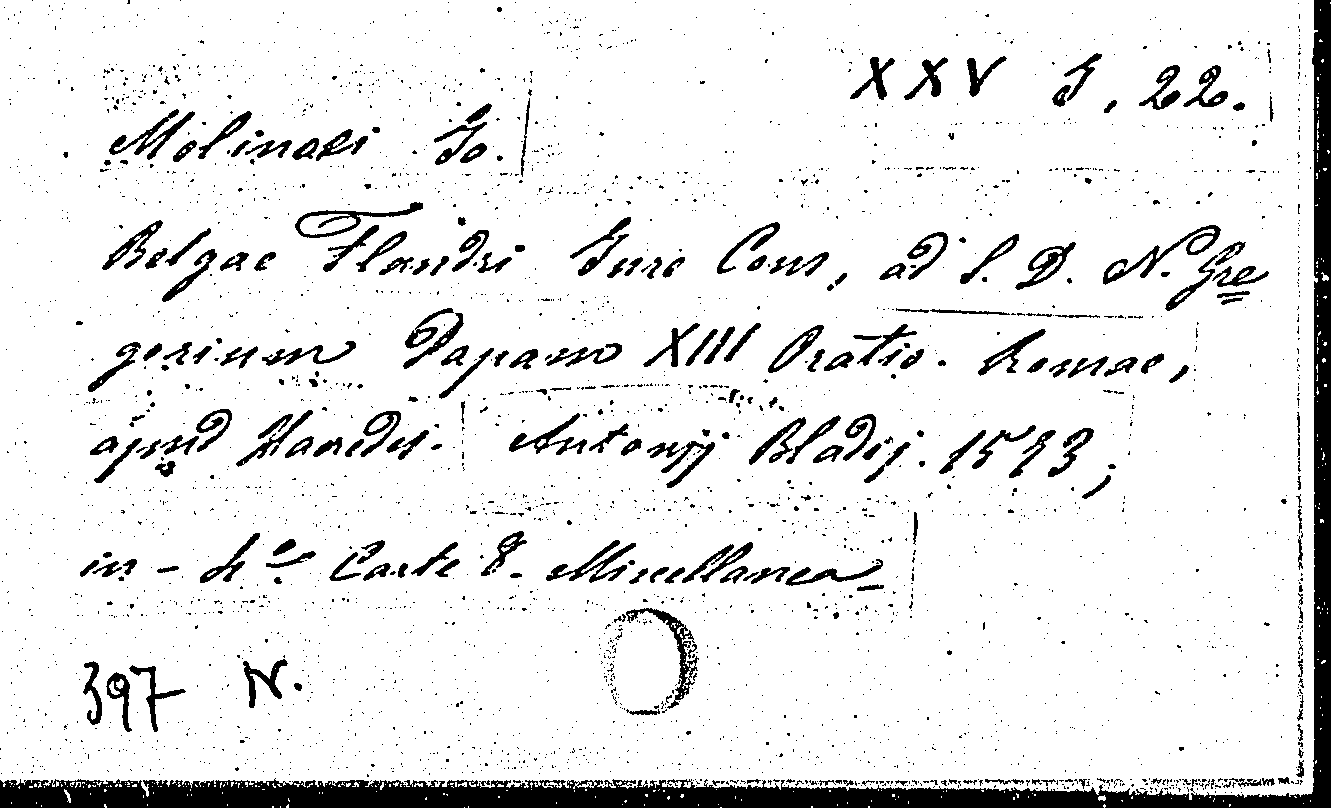 XXV G, 22.
Molinaei Io.
Belgae Flandri Iure Cons, ad S. D. N. Gre
gorium Papam XIII Oratio. Romae,
apud Haeredes. Antonij Bladij. 1573,
in-4º Carte 8. Miscellanea
397 N.